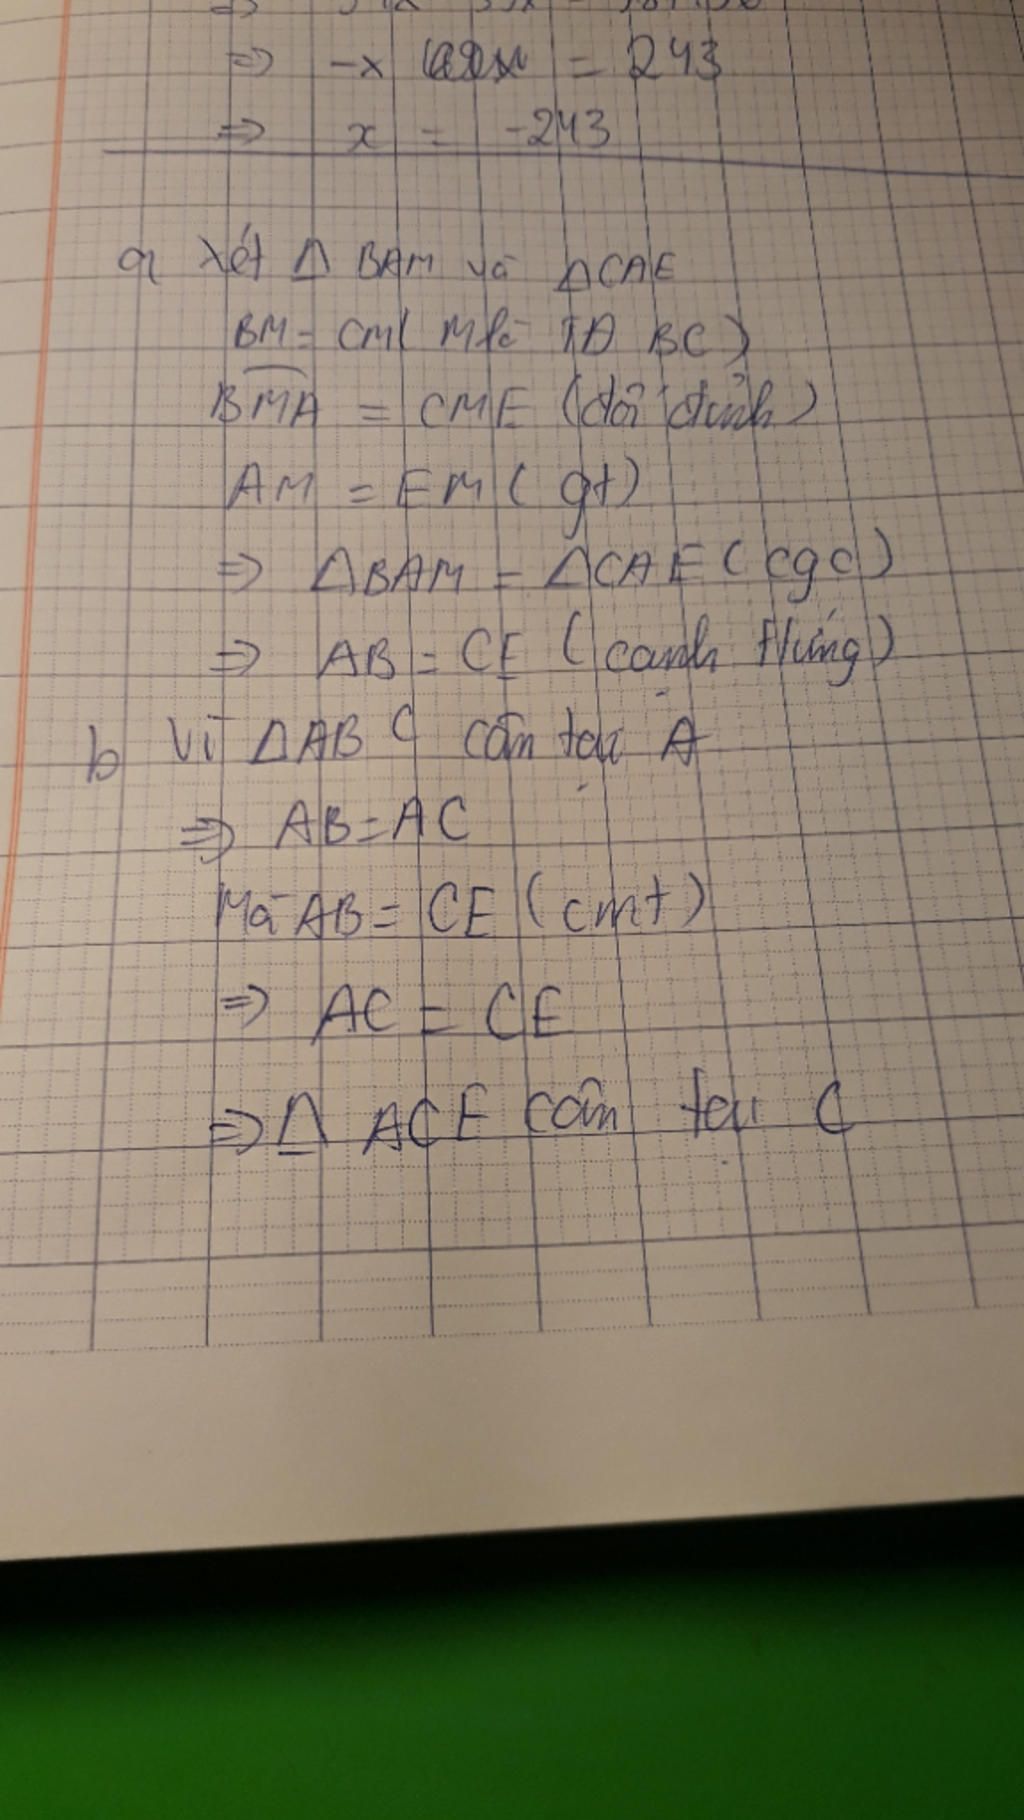 ⇒ -x = 243
⇒ x = -243
a Xét Δ BAM và ΔCAE
BM = CM( M là TĐ BC)
BMA = CME (đối đỉnh)
AM = EM ( gt)
⇒ ΔBAM = ΔCAE ( cgc)
⇒ AB = CE ( cạnh tứng)
b Vì ΔABC cân tại A
⇒ AB = AC
Mà AB = CE (cmt)
⇒ AC = CE
⇒ Δ ACE cân tại C